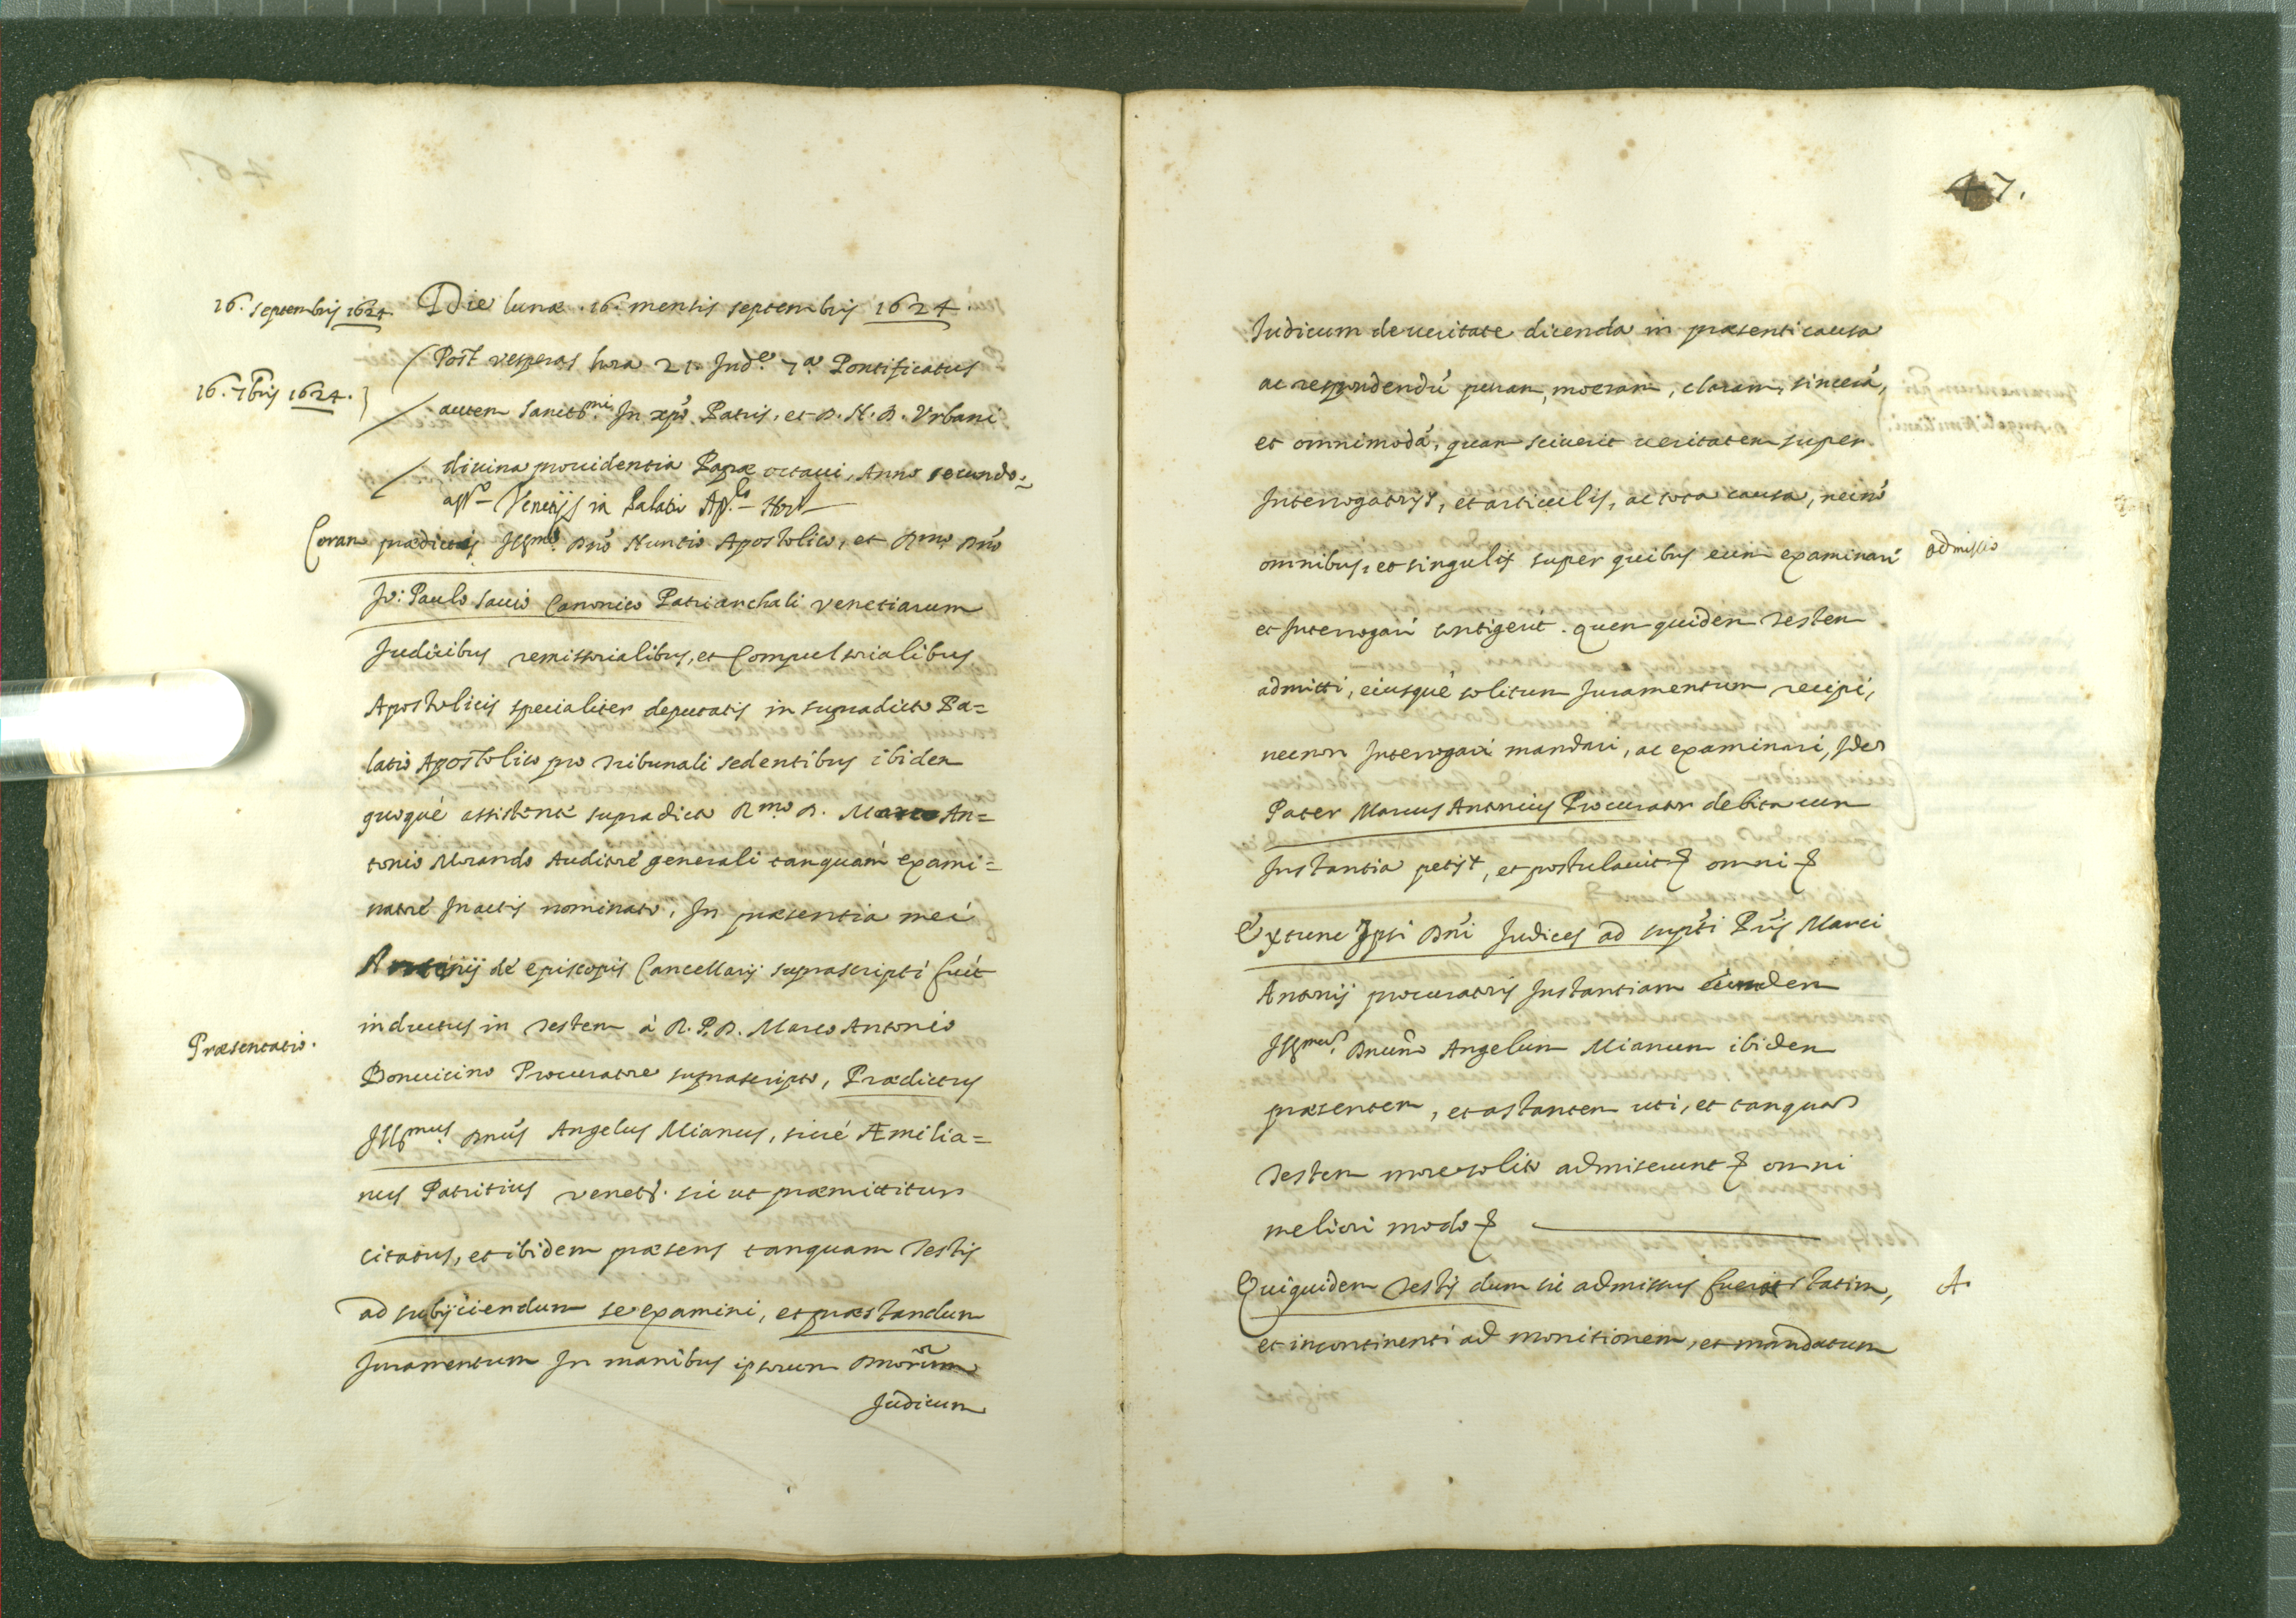 16. septembris 1624.
Die lunæ .16. mensis septembris 1624.
Post vesperas hora 21. Ind.e 7.a Pontificatus
16. 7bris 1624.
autem sanctis.mi In xpo Patris, et D. N. D. Urbani
divina providentia Papæ octavi, Anno secundo.
Venetijs in Palatio Ap.lo
Coram prædictis Ill.mo Dno Nuntio Apostolico, et Rmo Dno
Jo: Paulo Savio Canonico Patriarchali venetiarum
Judicibus remissorialibus, et Compulsorialibus
Apostolicis specialiter deputatis in supradicto Pa=
latio Apostolico pro Tribunali sedentibus ibidem
quoquè assistente supradicto R.mo D. Marco An=
tonio Morando Auditore generali tanquàm exami=
natore In actis nominato, In præsentia mei
Antonij de episcopis Cancellarij suprascripti fuit
inductus in Testem à R. P. D. Marco Antonio
Præsentatio.
Bonvicino Procuratore suprascripto, Prædictus
Ill.mus Dnus Angelus Mianus, sivè Æmilia=
nus Patritius venets. sic ut præmittitur
citatus, et ibidem præsens tanquam Testis
ad subijciendum se examini, et præstandum
Juramentum In manibus ipsorum Dnorum
Judicum
47.
Judicum de veritate dicenda in præsenti causa
ac respondendu puram, moeram, claram, sincerã,
et omnimodã, quam sciverit veritatem super
Interrogatorijs, et articulis, ac tota causa, necnõ
omnibus, et singulis super quibus eum examinari
admissio
et Interrogari contigerit. quem quidem Testem
admitti, eiusquè solitum Juramentum recipi,
necnon Interrogari mandari, ac examinari, Idem
Pater Marcus Antonius Procurator debita cum
Instantia petijt, et postulavit omni
Extunc Ipsi Dni Judices ad supti Pris Marci
Antonij procuratoris Instantiam eundem
Ill.mum Dnum Angelum Mianum ibidem
præsentem, et astantem uti, et tanquam
Testem more solito admiserunt omni
meliori modo
Qui quidem Testis dum sic admissus fuerit statim,
A.
et incontinenti ad monitionem, et mandatum